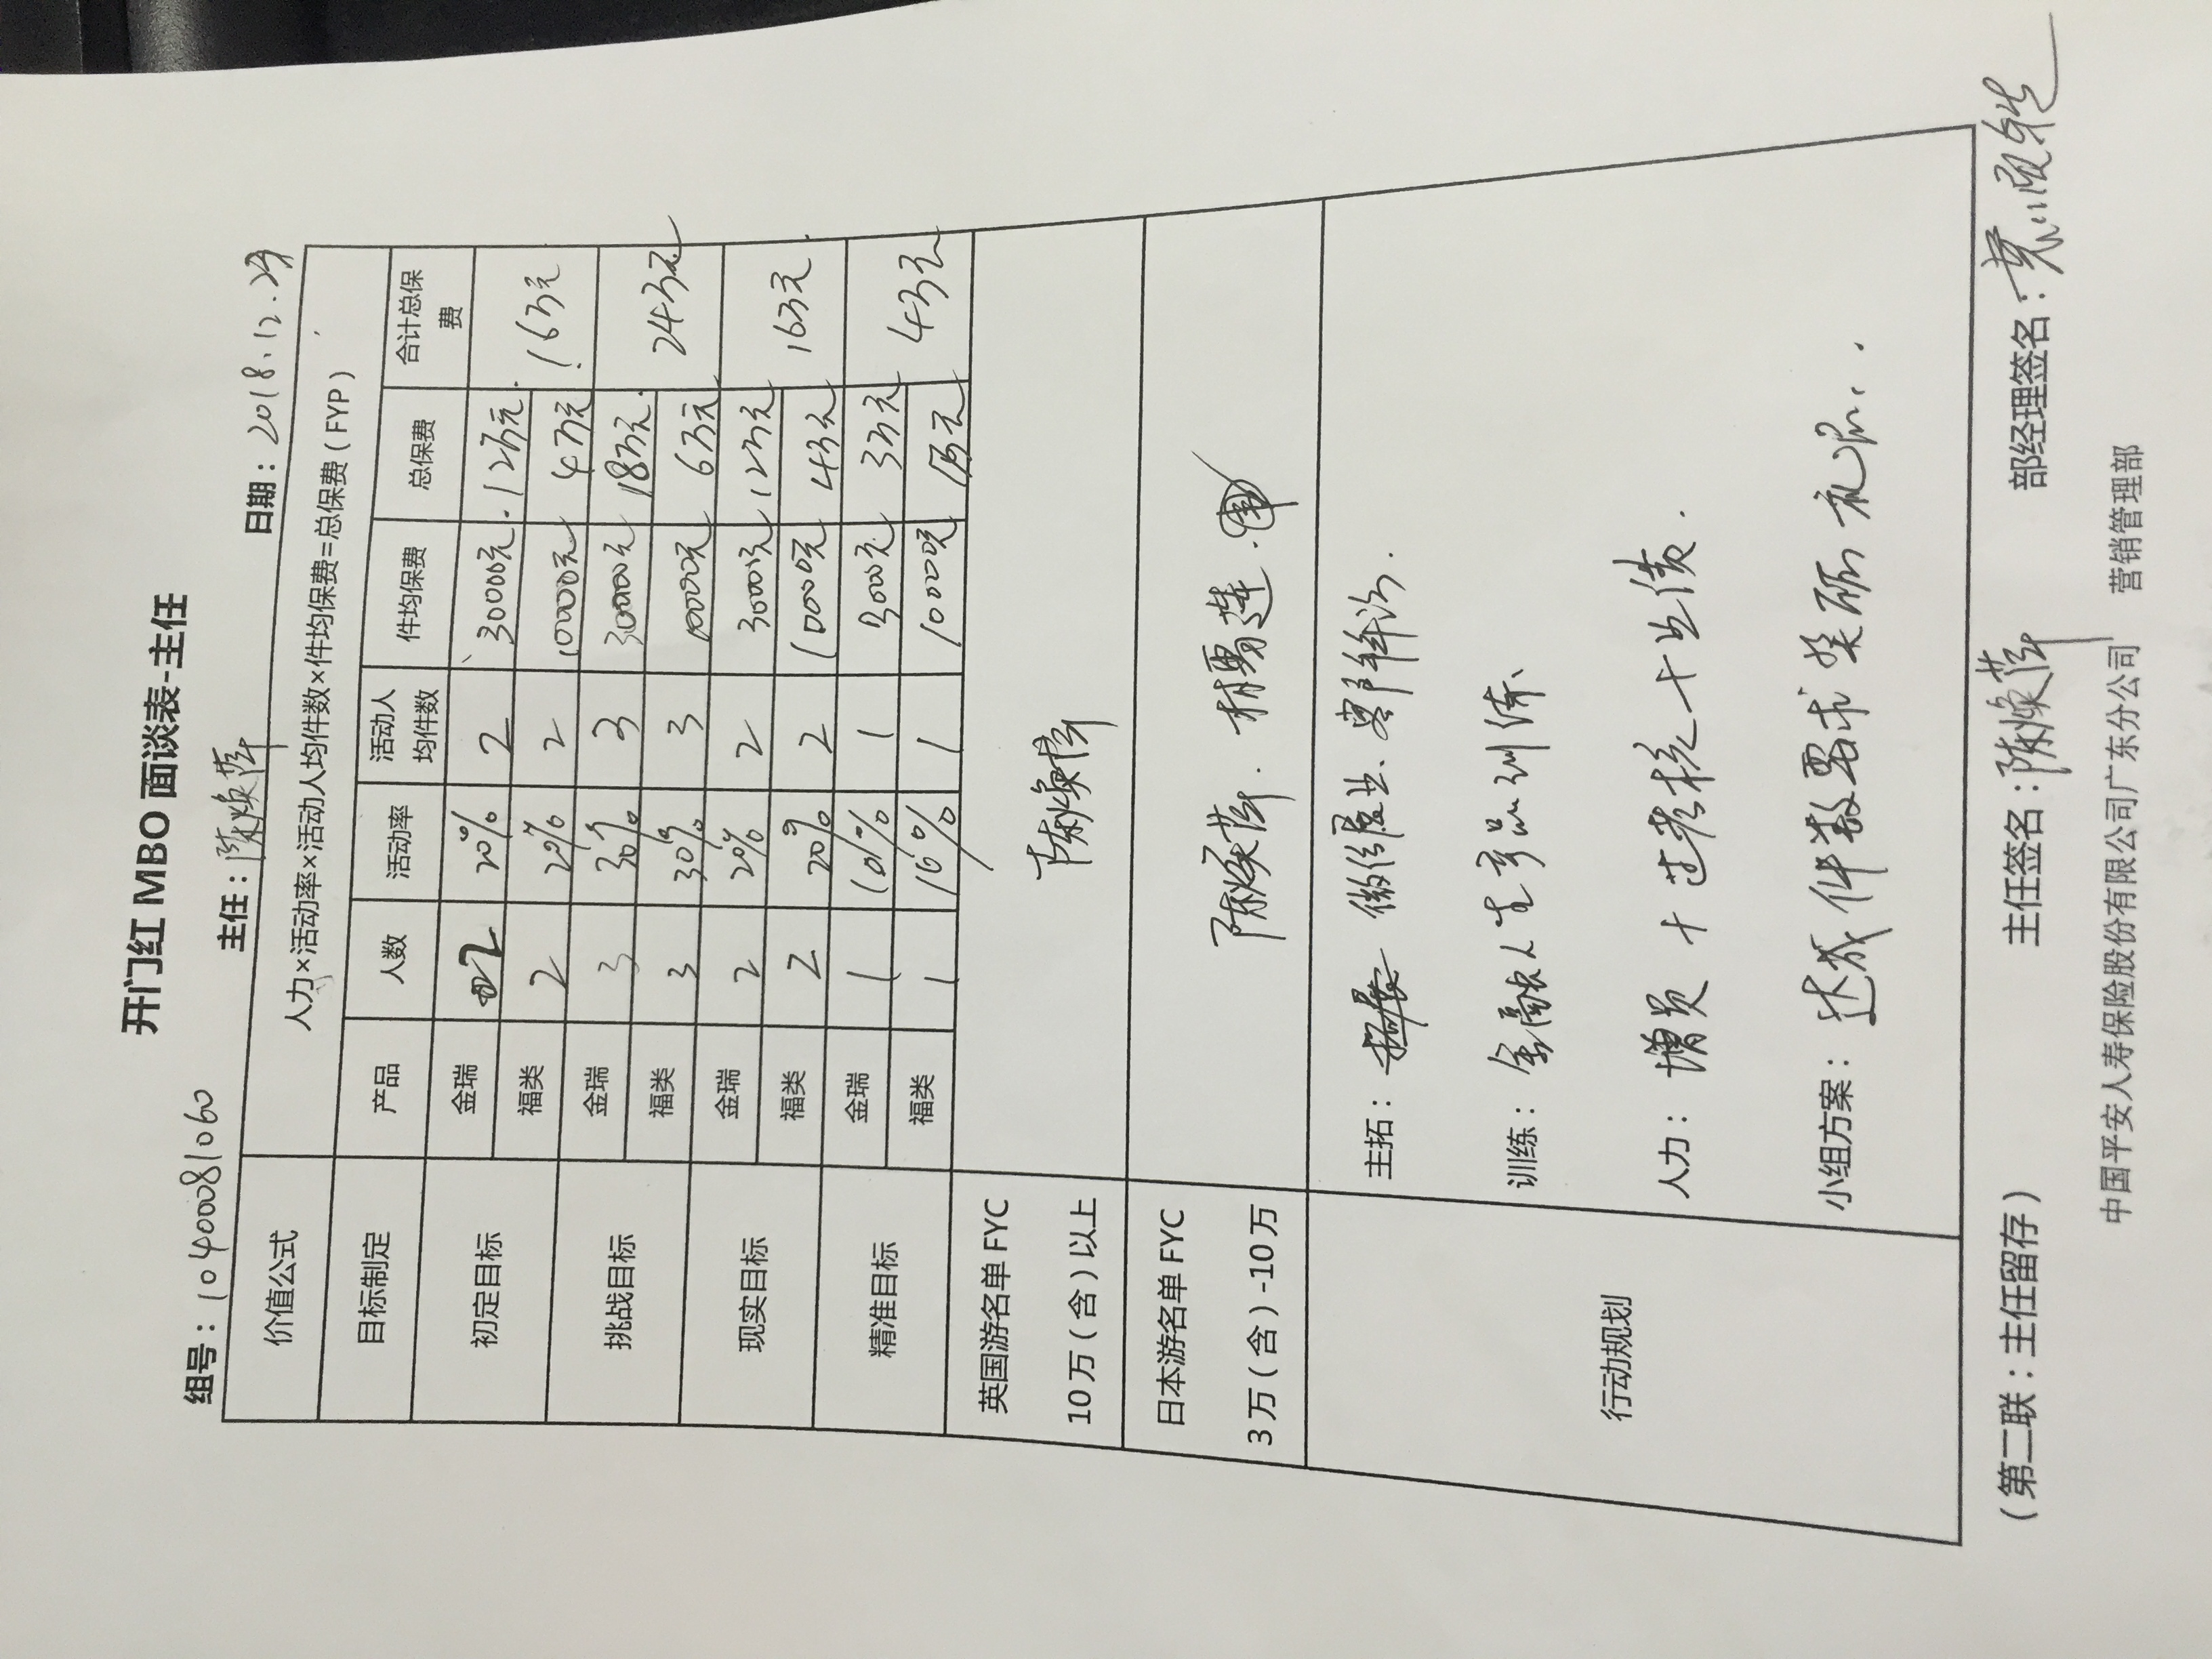 开门红 MBO 面谈表-主任
组号：1040081060 主任：陈焕萍 日期：2018.12.29
价值公式 人力×活动率×活动人均件数×件均保费=总保费（FYP）
目标制定 产品 人数 活动率 活动人均件数 件均保费 总保费 合计总保费
初定目标 金瑞 2 20% 2 30000元 12万元 16万元
福类 2 20% 2 10000元 4万元
挑战目标 金瑞 3 30% 3 30000元 18万元 24万元
福类 3 30% 3 10000元 6万元
现实目标 金瑞 2 20% 2 30000元 12万元 16万元
福类 2 20% 2 10000元 4万元
精准目标 金瑞 1 10% 1 30000元 3万元 4万元
福类 1 10% 1 10000元 1万元
英国游名单 FYC
10万（含）以上
陈焕萍
日本游名单 FYC
3万（含）-10万
陈焕萍. 林
行动规划
主拓：
训练：金融人生产品训练
人力：增员+过考核+业绩.
小组方案：达成件数要求奖励礼品.
（第二联：主任留存） 主任签名：陈焕萍 部经理签名：
中国平安人寿保险股份有限公司广东分公司 营销管理部